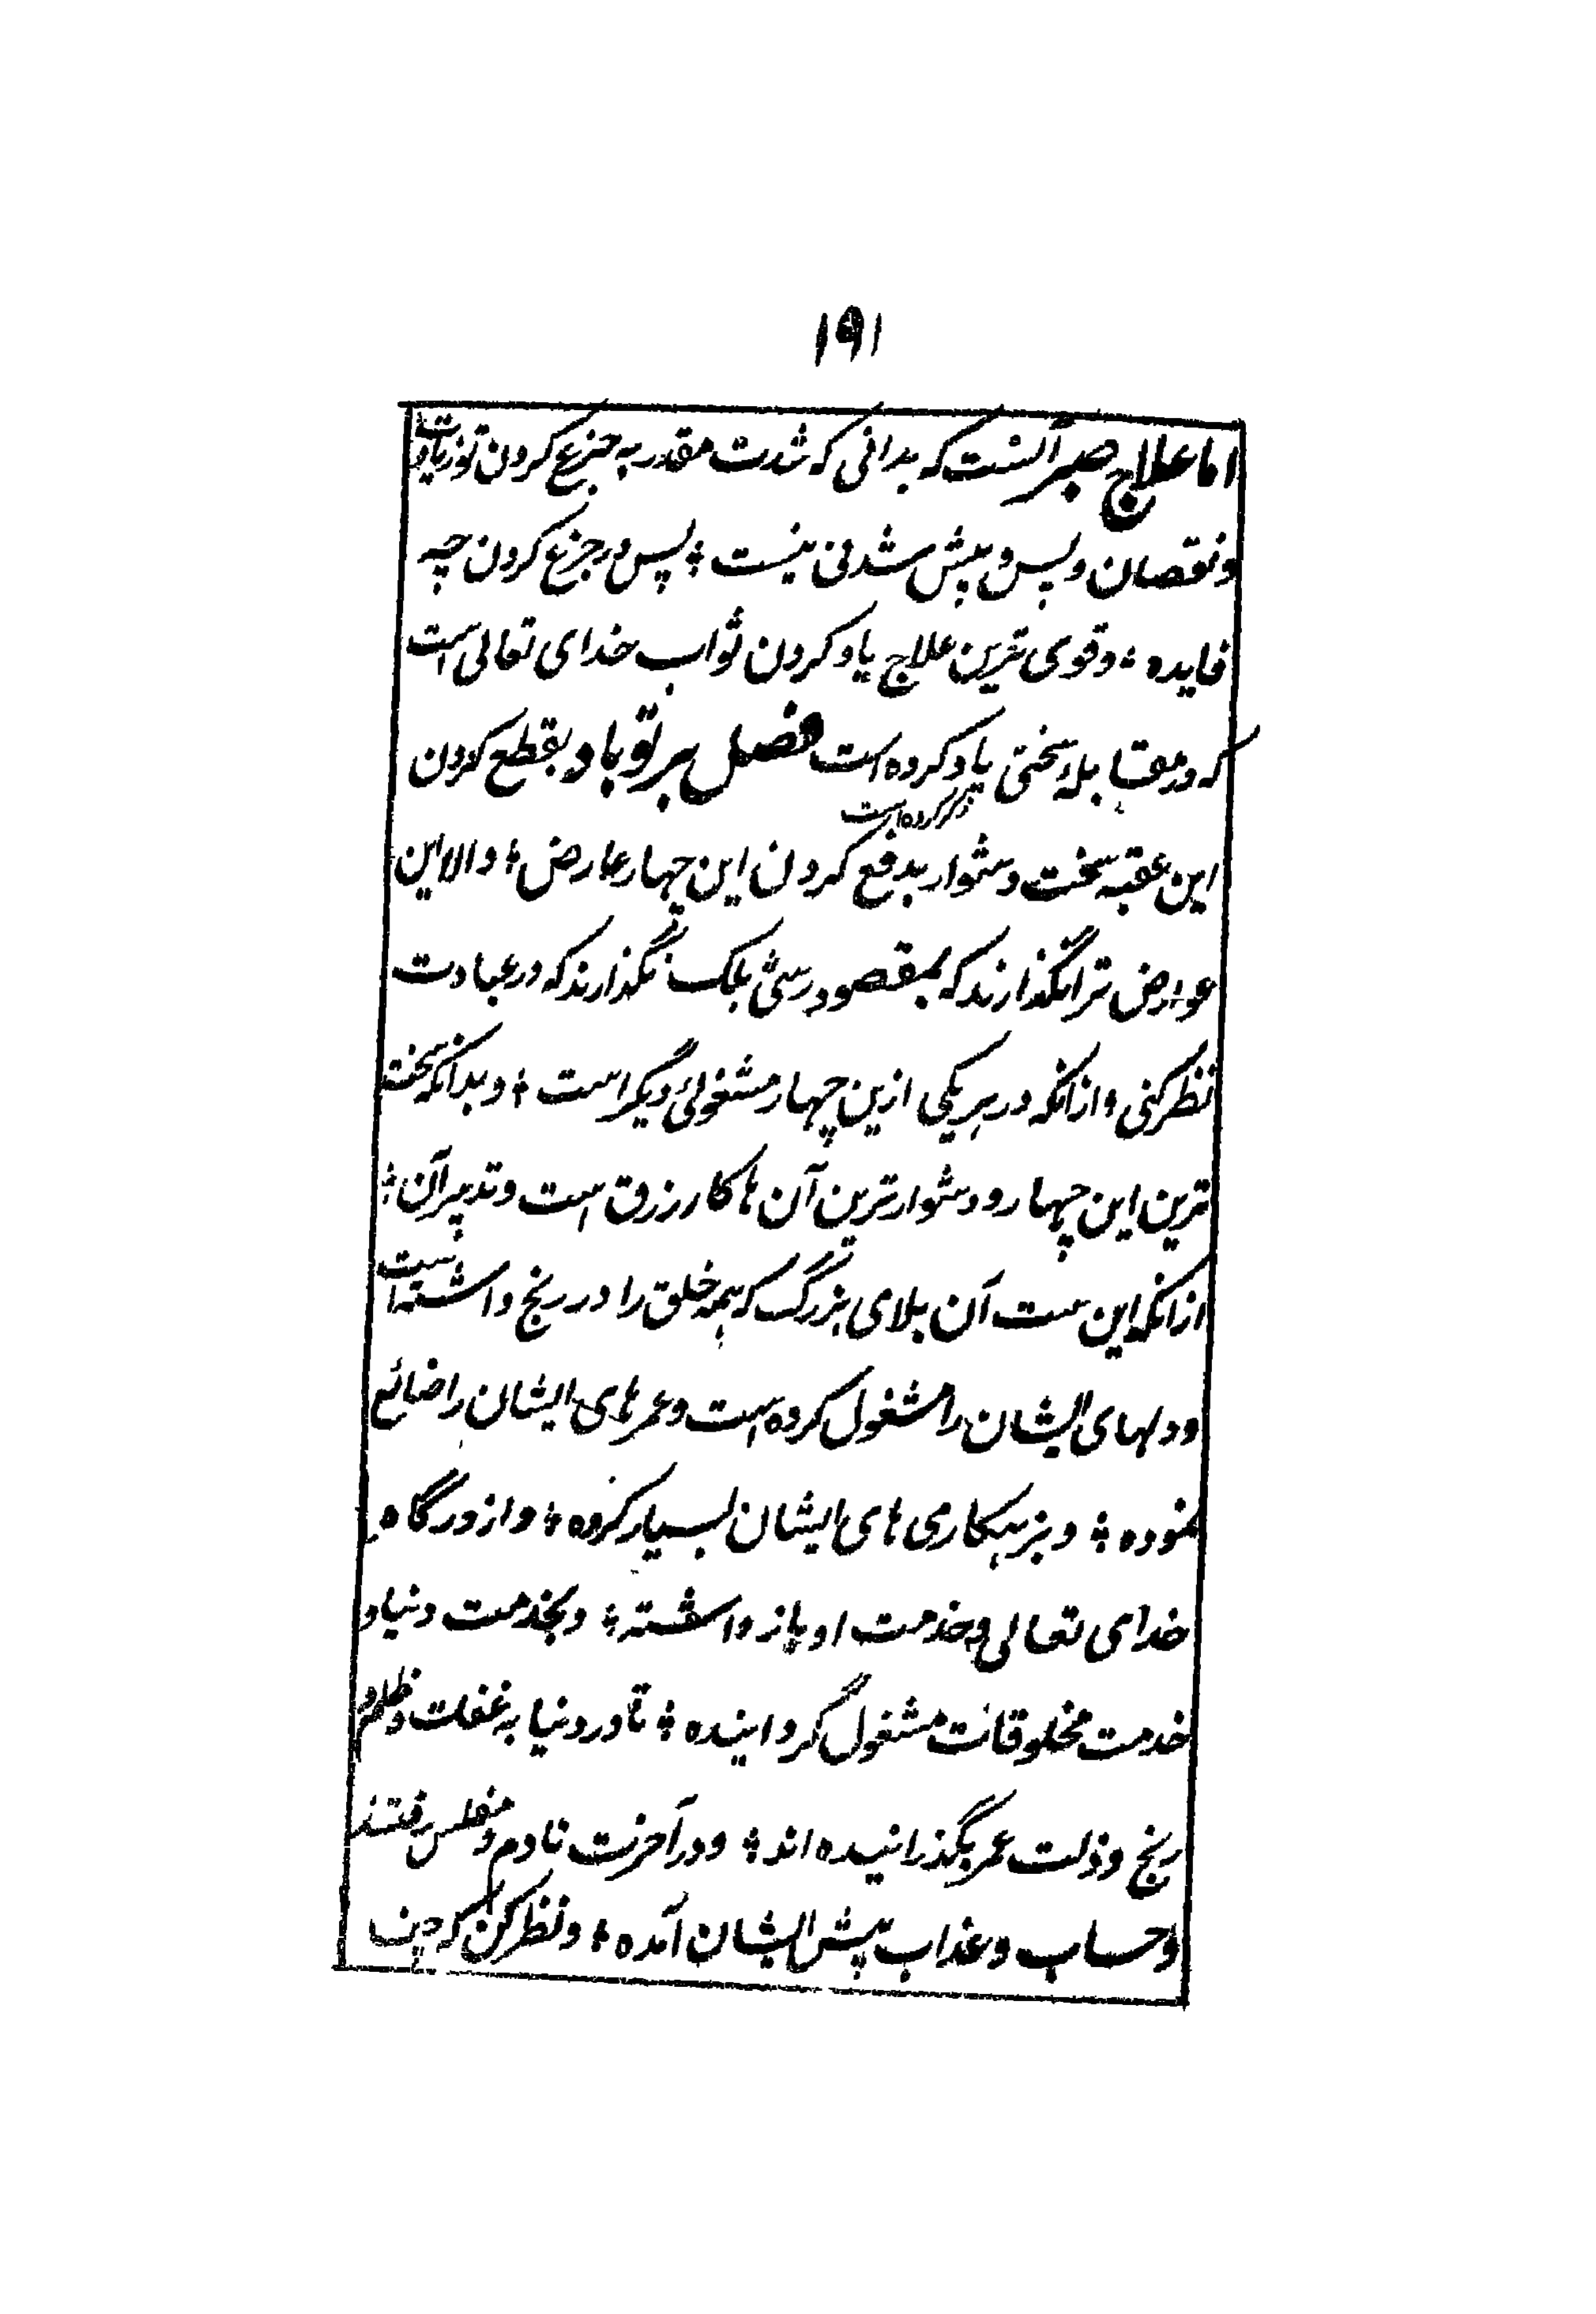 ۱۹۱
اما علاج صبر آنست که بدانی که شدت مقدر به جزع کردن تو زیادت
و نقصان و پس و پیش شدنی نیست ؛ پس در جزع کردن چه
فایده ؛ و قوی ترین علاج یاد کردن ثواب خدای تعالی است
که در مقابلهٔ سختی یاد کرده است فصل بر تو باد بقطع کردن
ذکر کرده است
این عقبه سخت دشوار بدفع کردن این چهار عارض ؛ والا این
عوارض ترا نگذارند که بمقصود رسی بلک نگذارند که در عبادت
نظر کنی و ازانکه در هر یکی ازین چهار مشغولی دیگر است ؛ و بدانکه سخت
ترین این چهار و دشوار ترین آن ها کار رزق است و تدبیر آن ؛
ازانکه این ست آن بلای بزرگ که همه خلق را در رنج داشته است
و دلهای ایشان را مشغول کرده است و عمر های ایشان را ضائع
نموده ؛ و بزهکاری های ایشان بسیار کرده ؛ و از درگاه
خدای تعالی و خدمت او باز داشته ؛ و بخدمت دنیا و
خدمت مخلوقات مشغول گردانیده ؛ تا در دنیا به غفلت و ظلم و
رنج و ذلت عمر بگذرانیده اند ؛ و در آخرت نادم و مفلس رفتند
و حساب و عذاب پیش ایشان آمده ؛ و نظر کن که